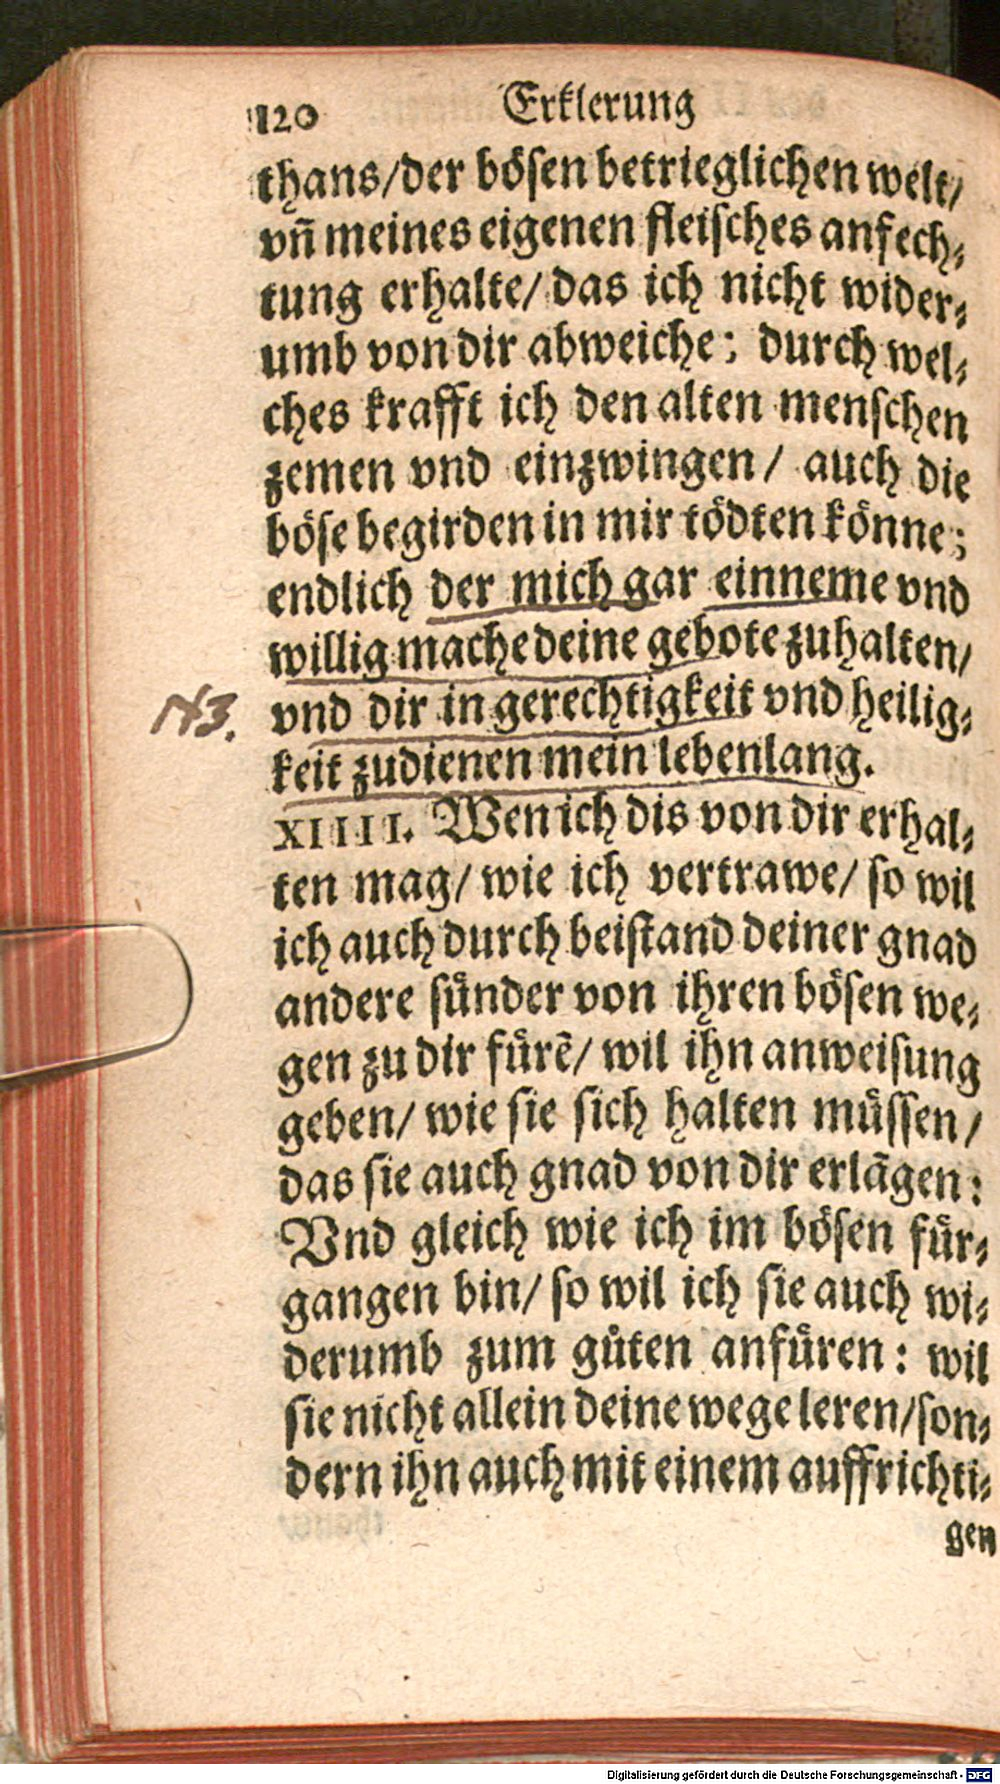 120 Erklerung
thans/der bösen betrieglichen welt/
vñ meines eigenen fleisches anfech⸗
tung erhalte/ das ich nicht wider⸗
umb von dir abweiche: durch wel⸗
ches krafft ich den alten menschen
zemen vnd einzwingen/ auch die
böse begirden in mir tödten könne;
endlich der mich gar einneme vnd
willig mache deine gebote zuhalten/
NB. vnd dir in gerechtigkeit vnd heilig⸗
keit zudienen mein lebenlang.
XIIII. Wen ich dis von dir erhal⸗
ten mag/ wie ich vertrawe/ so wil
ich auch durch beistand deiner gnad
andere sünder von ihren bösen we⸗
gen zu dir fürẽ/ wil ihn anweisung
geben/ wie sie sich halten müssen/
das sie auch gnad von dir erlãgen:
Vnd gleich wie ich im bösen für⸗
gangen bin/ so wil ich sie auch wi⸗
derumb zum gůten anfüren: wil
sie nicht allein deine wege leren/son⸗
dern ihn auch mit einem auffrichti⸗
gen
Digitalisierung gefördert durch die Deutsche Forschungsgemeinschaft - DFG